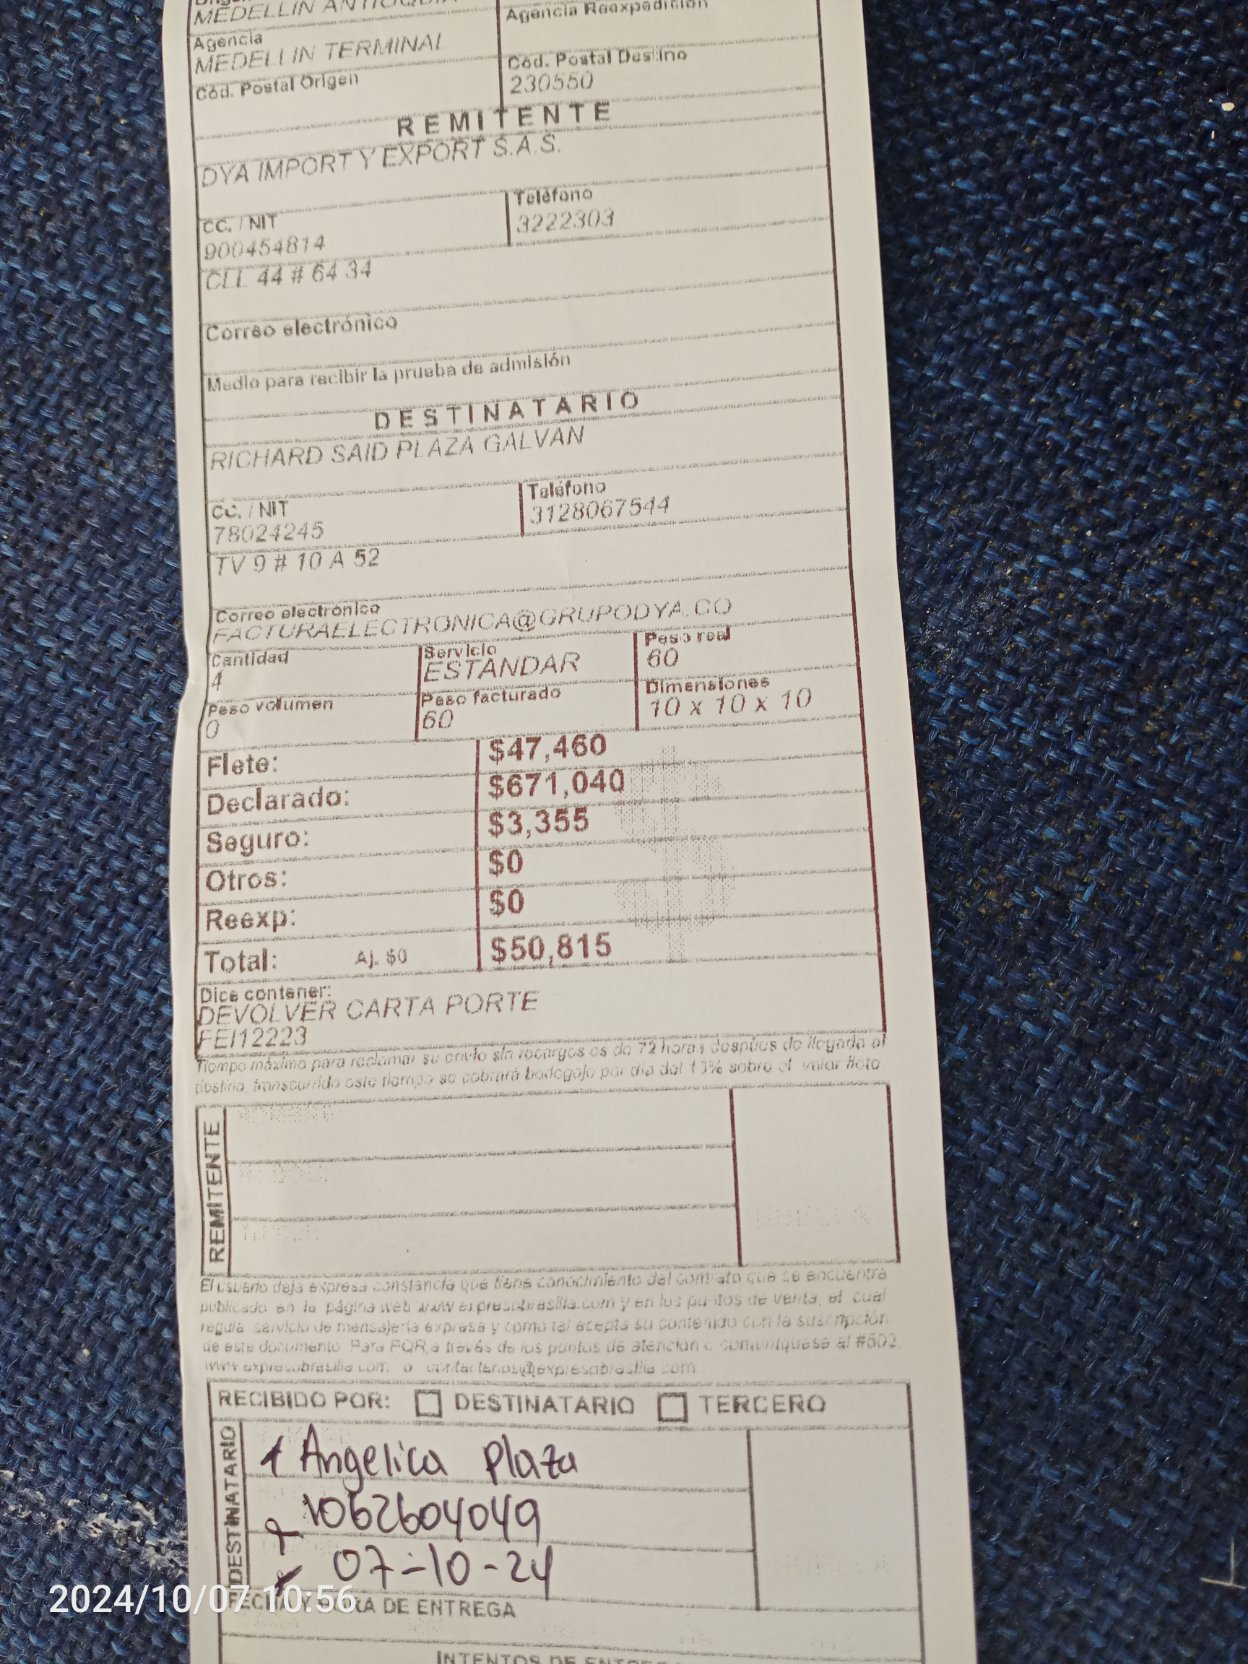 MEDELLIN ANTIOQUIA
Agencia Reexpedición
Agencia
MEDELLIN TERMINAL
Cód. Postal Origen
Cód. Postal Destino
230550
REMITENTE
DYA IMPORT Y EXPORT S.A.S.
CC. / NIT
900454814
Teléfono
3222303
CLL 44 # 64 34
Correo electrónico
Medio para recibir la prueba de admisión
DESTINATARIO
RICHARD SAID PLAZA GALVAN
CC. / NIT
78024245
Teléfono
3128067544
TV 9 # 10 A 52
Correo electrónico
FACTURAELECTRONICA@GRUPODYA.CO
Cantidad
4
Servicio
ESTANDAR
Peso real
60
Peso volumen
0
Peso facturado
60
Dimensiones
10 x 10 x 10
Flete: $47,460
Declarado: $671,040
Seguro: $3,355
Otros: $0
Reexp: $0
Total: Aj. $0 $50,815
Dice contener:
DEVOLVER CARTA PORTE
FEI12223
Tiempo máximo para reclamar su envío sin recargos es de 72 horas después de llegada al
destino, transcurrido este tiempo se cobrará bodegaje por día del 13% sobre el valor flete
REMITENTE
HUELLA
El usuario deja expresa constancia que tiene conocimiento del contrato que se encuentra
publicado en la página web www.expresobrasilia.com y en los puntos de venta, el cual
regula servicio de mensajería expresa y como tal acepta su contenido con la suscripción
de este documento. Para PQR a través de los puntos de atención o comuníquese al #502,
www.expresobrasilia.com o contactenos@expresobrasilia.com
RECIBIDO POR: DESTINATARIO TERCERO
DESTINATARIO
Angelica Plaza
1062604049
07-10-24
DE ENTREGA
2024/10/07 10:56